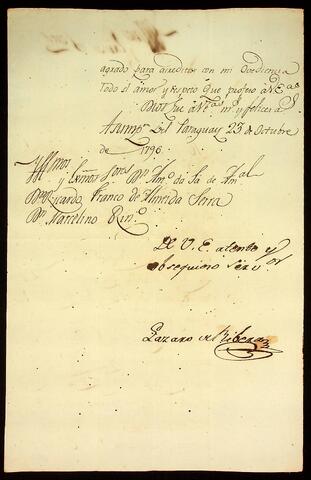 agrado para acreditar con mi obediencia
todo el amor y respeto que profeso a VE.as
Dios gue a VE.as m.s y felices a.s
Asump.n del Paraguay 23 de Octubre
de 1796.
Illmos. y Exmos Sores. Dn. Anto. da Sa. de Am.al
Dn. Ricardo Franco de Almeida Serra
Dn. Marcelino
De V. E. atento y
obsequioso Serv.or
Lazaro de Ribera